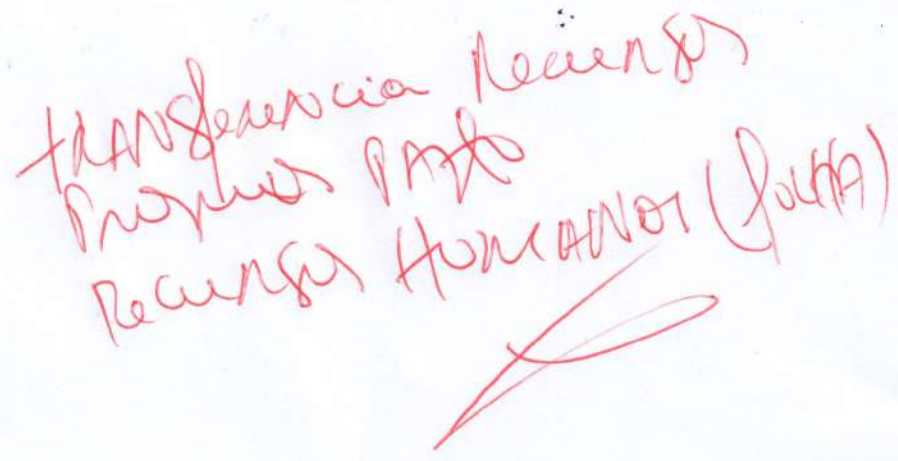 transferencia Recursos
Proprios Pagto
Recursos Humanos (folha)